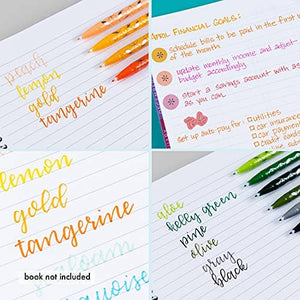 peach
lemon
gold
tangerine
APRIL FINANCIAL GOALS:
schedule bills to be paid in the first
of the month
update monthly income and adjust
budget accordingly
start a savings account with as
as you can.
set up auto pay for:
utilities
car insurance
car payment
credit card
lemon
gold
tangerine
book not included
aloe
kelly green
pine
olive
gray
black